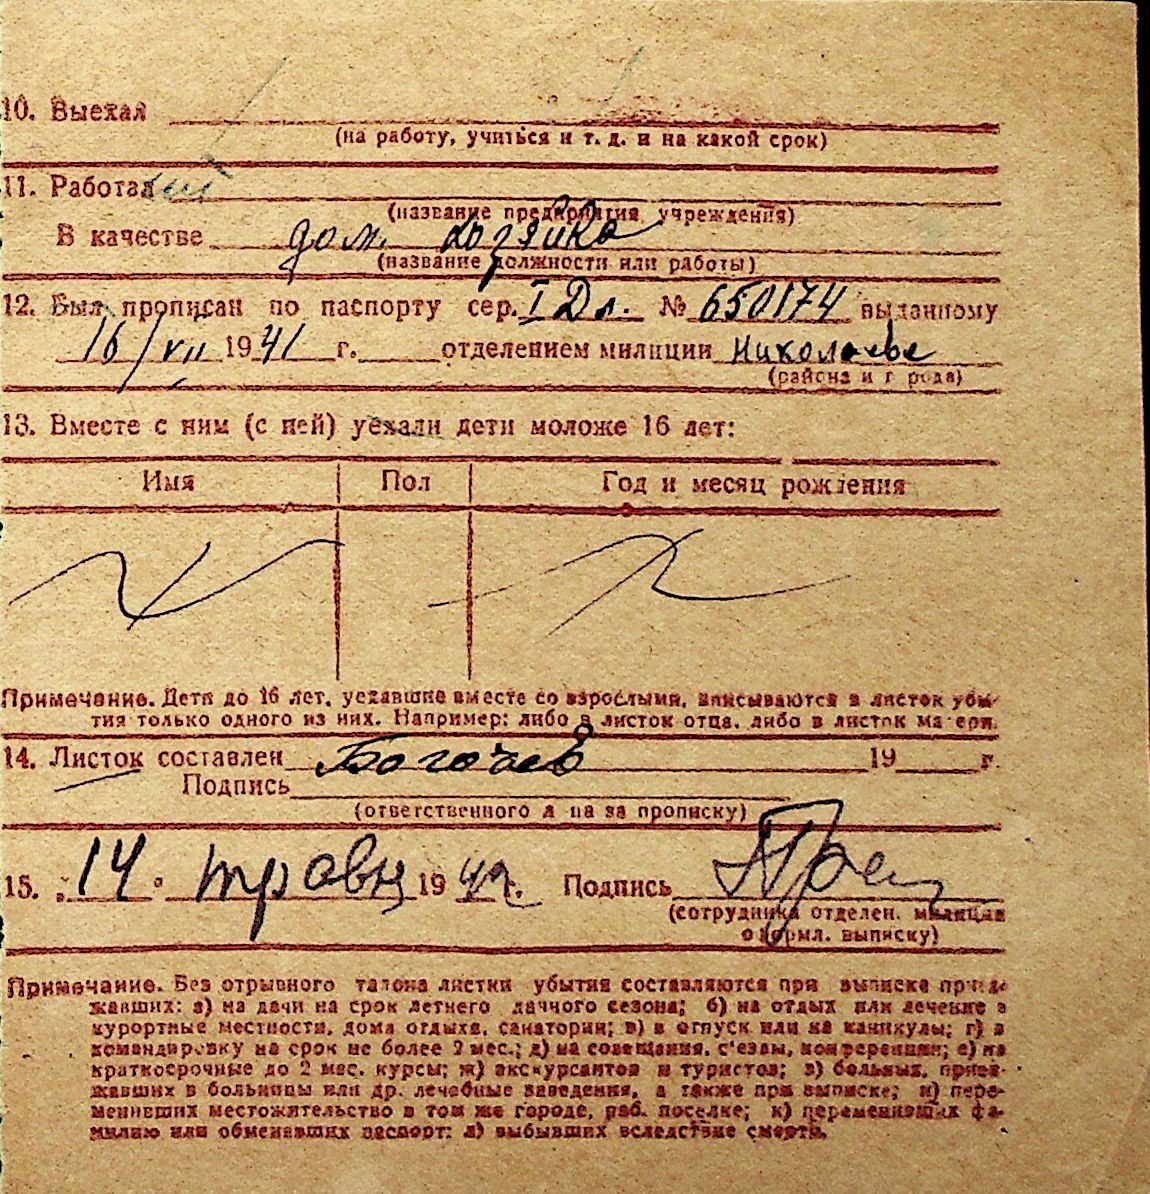 10. Выехал
(на работу, учиться и т. д. и на какой срок)
11. Работал
(название предприятия учреждения)
В качестве дом. хозяйка
(название должности или работы)
12. Был прописан по паспорту сер. I Дл. № 650174 выданному
16/VII 1941 г. отделением милиции Николаеве
(района и города)
13. Вместе с ним (с ней) уехали дети моложе 16 лет:
Имя Пол Год и месяц рождения
Примечание. Дети до 16 лет, уехавшие вместе со взрослыми, вписываются в листок убы-
тия только одного из них. Например: либо в листок отца, либо в листок матери.
14. Листок составлен 19 г.
Подпись
(ответственного лица за прописку)
15. „14" травня 1942 г. Подпись
(сотрудника отделен. милиции
оформл. выписку)
Примечание. Без отрывного талона листки убытия составляются при выписке приез-
жавших: а) на дачи на срок летнего дачного сезона; б) на отдых или лечение в
курортные местности, дома отдыха, санатории; в) в отпуск или на каникулы; г) в
командировку на срок не более 2 мес.; д) на совещания, с'езды, конференции; е) на
краткосрочные до 2 мес. курсы; ж) экскурсантов и туристов; з) больных, приез-
жавших в больницы или др. лечебные заведения, а также при выписке; и) пере-
менивших местожительство в том же городе, раб. поселке; к) переменивших фа-
милию или обменявших паспорт; л) выбывших вследствие смерти.